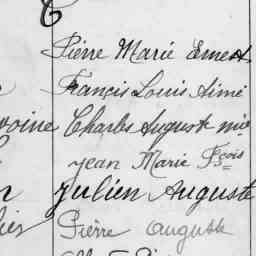 C
Pierre Marie Ernest
Francis Louis Aimé
voine Charles Auguste
Jean Marie Fçois
Julien Auguste
Pierre Auguste